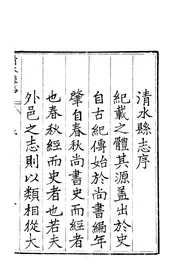 清水縣志序
紀載之體其源蓋出於史
自古紀傳始於尚書編年
肇自春秋尚書史而經者
也春秋經而史者也若夫
外邑之志則以類相從大